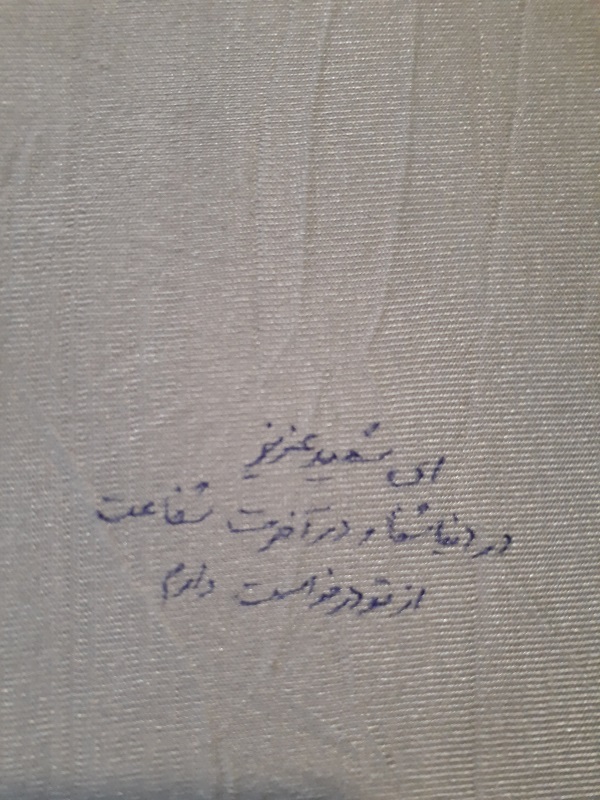 ای شهید عزیز
در دنیا شفا و در آخرت شفاعت
از تو درخواست دارم